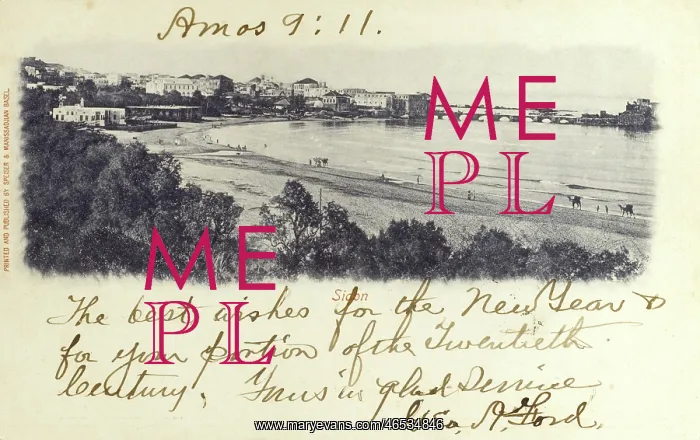 Amos 9:11.
PRINTED AND PUBLISHED BY SPEISER & MANISSADJIAN BASEL.
ME
PL
ME
PL
Sidon
The best wishes for the New Year &
for your portion of the Twentieth
Century. Yours in glad Service
Geo. A. Ford.
www.maryevans.com/46534846